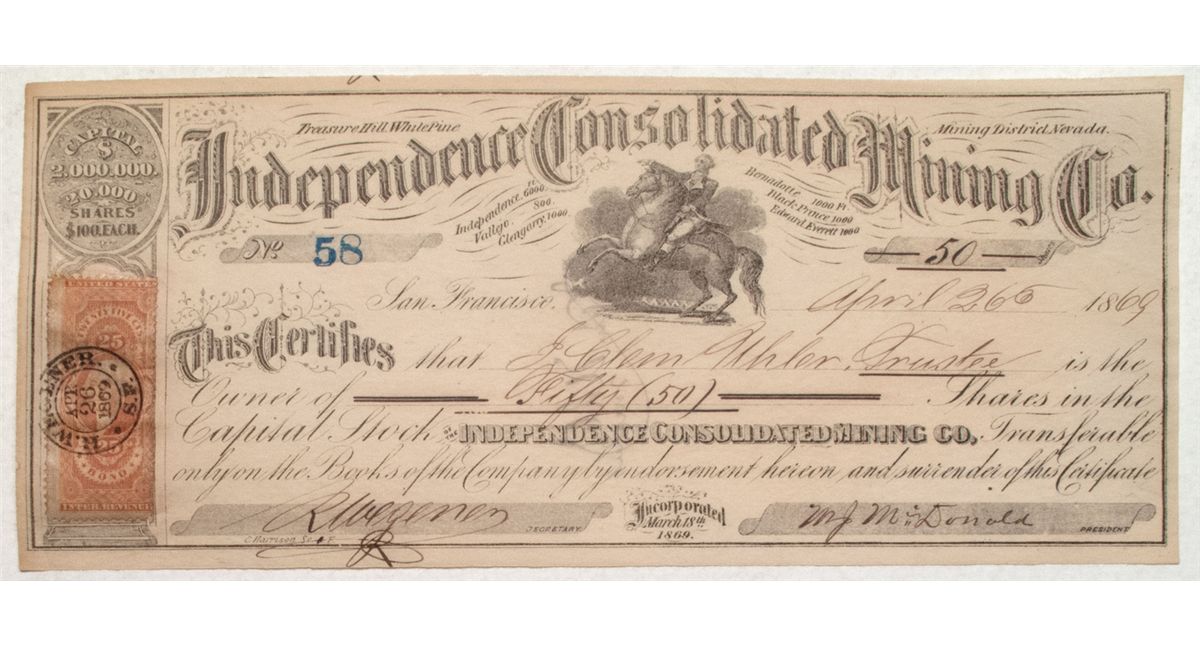 CAPITAL
$
2.000.000.
20.000
SHARES
$100.EACH.
Treasure Hill, White Pine
Mining District, Nevada.
Independence Consolidated Mining Co.
Independence, 6000. ft
Vallejo, 800.
Glengarry, 1000.
Bernadotte 1000 Ft.
Black Prince 1000
Edward Everett 1000
No 58
50 Shares
San Francisco. April 26 1869
This Certifies that J Clem Uhler, Trustee is the
Owner of Fifty (50) Shares in the
Capital Stock of the INDEPENDENCE CONSOLIDATED MINING CO. Transferable
only on the Books of the Company by endorsement hereon and surrender of this Certificate
R Wegener SECRETARY.
Incorporated
March 18th
1869.
M J McDonald PRESIDENT
C. Harrison, Sc. S F.
UNITED STATES
25
25
BOND
INTER. REVENUE
R. WEGENER. S.F.
APR
26
1869